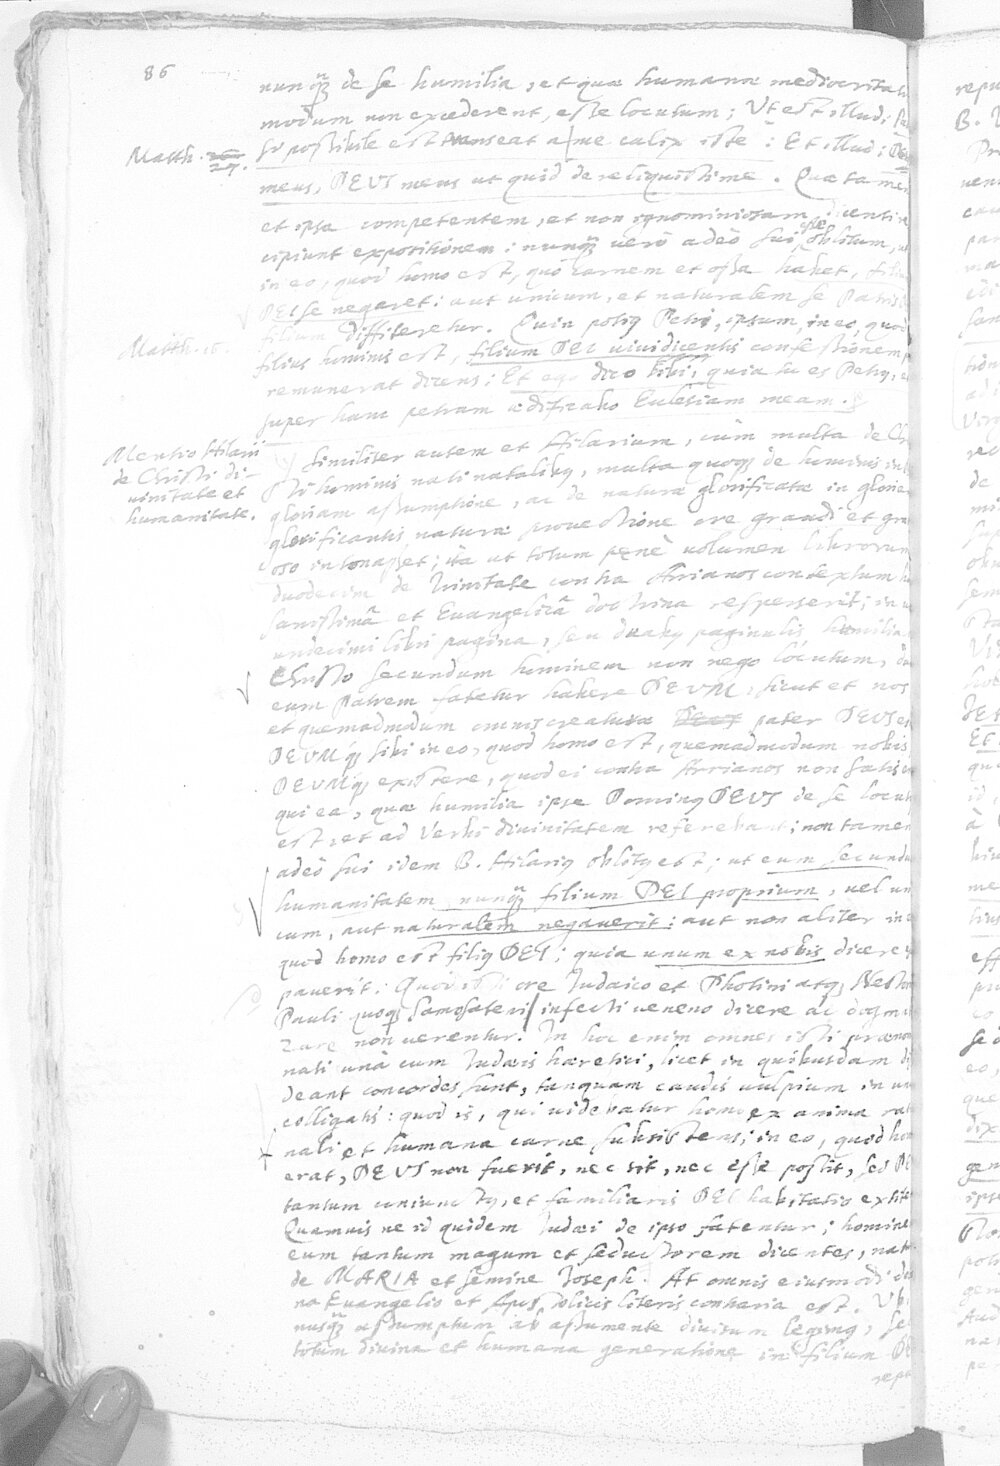 86
nunqȝ de se humilia, et quæ humanæ mediocritatis
modum non excederent, esse locutum; Ut est illud: Pa
Si possibile est transeat a me calix iste: Et illud: DEUS
Matth. 26
27.
meus, DEUS meus ut quid dereliquisti me. Quæ tamen
et ipsa competentem, et non ignominiosam dicenti re
cipiunt expositionem: nunqȝ verò adeò sui ipse oblitum, ut
in eo, quod homo est, quò carnem et ossa habet, filium
DEI se negaret: aut unicum, et naturalem se Patris
filium diffiteretur. Quin potiꝰ Petri, ipsum, in eo, quod
Matth. 16.
filius hominis est, filium DEI vivi dicentis confessionem
remunerat dicens: Et ego dico tibi, quia tu es Petrꝰ, et
super hanc petram ædificabo Ecclesiam meam.
Mentio Hilarii
de Christi di-
vinitate et
humanitate.
Similiter autem et Hilarium, cùm multa de Chri
sti hominis nati natalibꝰ, multa quoqȝ de hominis in
gloriam assumptione, ac de naturæ glorificatæ in gloriam
glorificantis naturæ provectione ore grandi et gra
oso intonasset; ita ut totum penè volumen librorum
duodecim de Trinitate contra Arrianos contextum
sanissimâ et Evangelicâ doctrina resperserit; in
undecimi libri pagina, seu duabꝰ paginulis humilia
Christo secundum hominem non nego locutum,
eum Patrem fatetur habere DEUM, sicut et nos
et quemadmodum omnis creaturæ pater DEUS
DEUMqȝ sibi in eo, quod homo est, quemadmodum nobis
DEUMqȝ existere, quod ei contra Arrianos non satis
qui ea, quæ humilia ipse Dominꝰ DEUS de se locut
est, et ad Verbi divinitatem referebant; non tamen
adeò sui idem B. Hilariꝰ oblitꝰ est; ut eum secundum
humanitatem nunqȝ filium DEI proprium, vel uni
cum, aut naturalem negaverit: aut non aliter in eo
quod homo est filiꝰ DEI; quia unum ex nobis dicere
paverit. Quod isti ore Judaico et Photini atqȝ Nestorii
Pauli quoqȝ Samosateni infecti veneno dicere ac dogma
zare non verentur. In hoc enim omnes isti prænom
nati unà cum Judæis hæretici, licet in quibusdam
deant concordes sunt, tanquam caudis vulpium in un
colligatis: quod is, qui videbatur homo ex anima ratio
nali et humana carne subsistens; in eo, quod homo
erat, DEUS non fuerit, nec sit, nec esse possit, sed DEI
tantum coniunctꝰ, et familiaris DEI habitatio extite
Quamvis ne id quidem Judæi de ipso fatentur; hominem
eum tantum magum et seductorem dicentes, natum
de MARIA et semine Joseph. At omnis eiusmodi doc
na Evangelio et Apostolicis literis contraria est. Ubi
nusqȝ assumptum ab assumente divisum legimꝰ, sed
totum divina et humana generatione in filium DEI